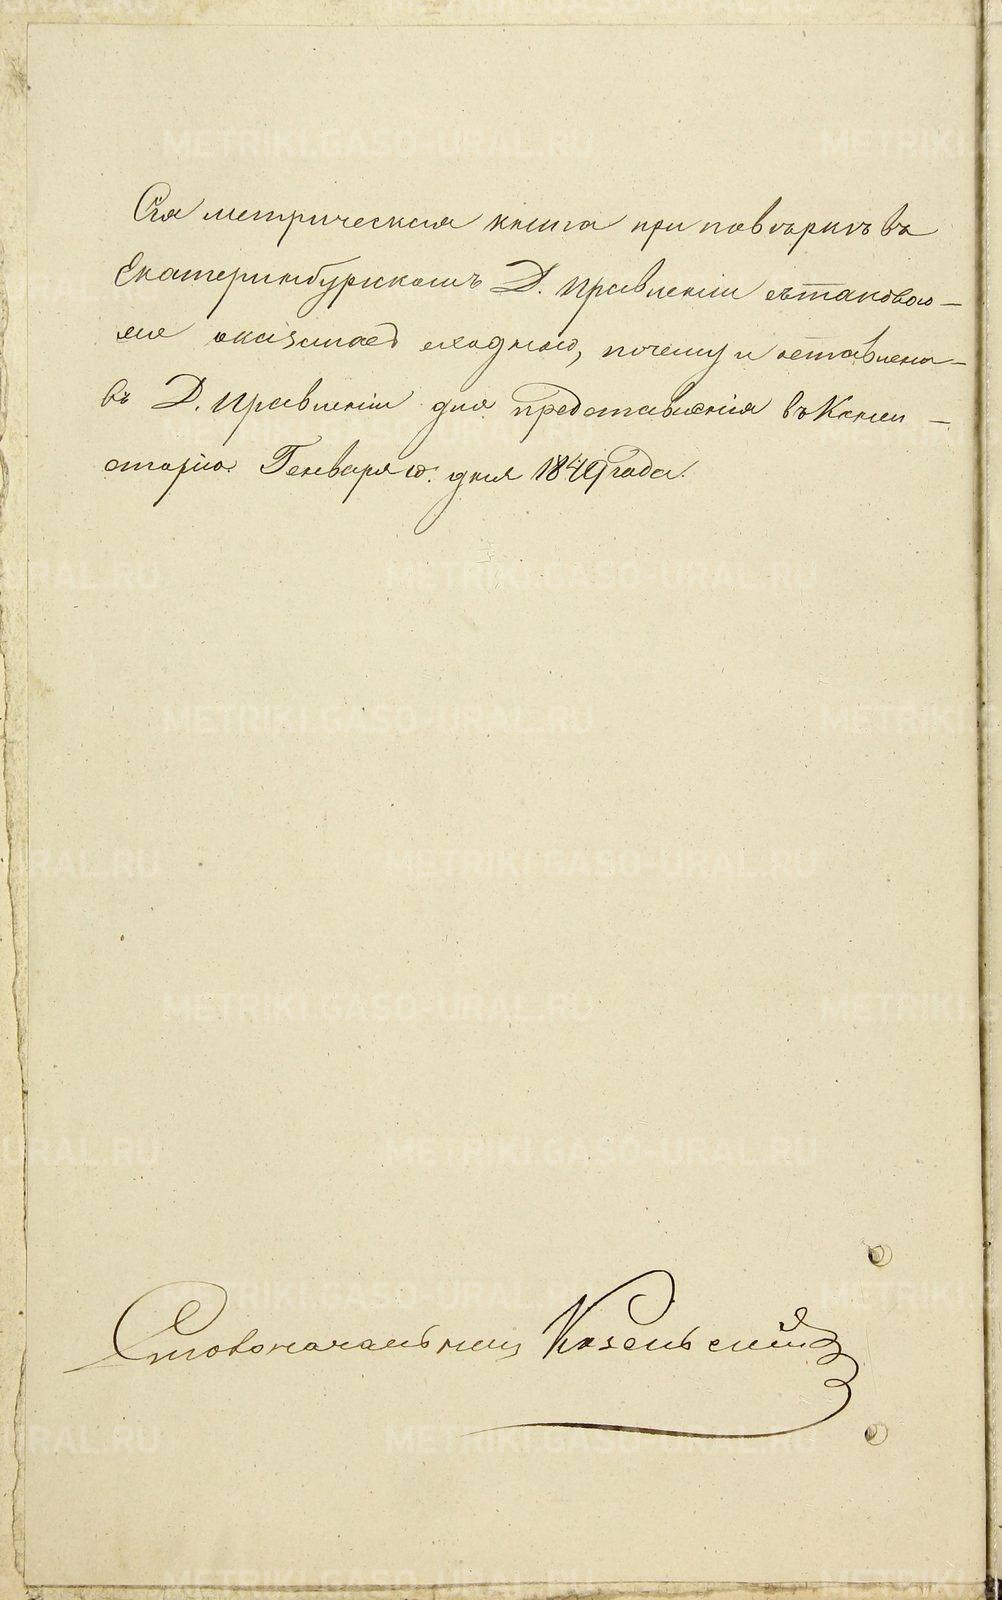 Сія метрическая книга при повѣркѣ въ
Екатеринбургскомъ Д. Правленіи съ таково—
ю же оказалась сходною, почему и оставлена—
въ Д. Правленіи для представленія въ Конси—
сторію. Генваря 10. дня 1849 года.
Столоначальникъ Козельскій
METRIKI.GASO-URAL.RU